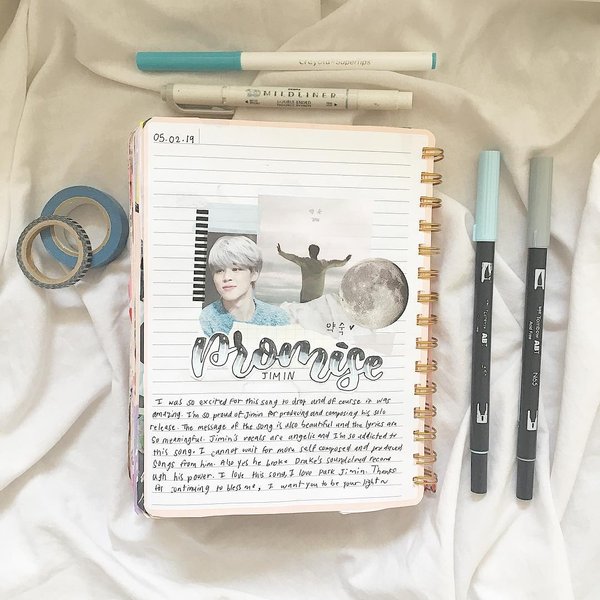 Crayola Supertips
MILDLINER
DOUBLE ENDED
05.02.19
약속
약속 ♥
promise
JIMIN
I was so excited for this song to drop and of course it was
amazing. I'm so proud of Jimin for producing and composing his solo
release. The message of the song is also beautiful and the lyrics are
so meaningful. Jimin's vocals are angelic and I'm so addicted to
this song. I cannot wait for more self composed and produced
songs from him. Also yes he broke Drake's soundcloud record
ugh his power. I love this song, I love Park Jimin. Thanks
for continuing to bless me, I want you to be your light~
Tombow ABT
ABT
N65